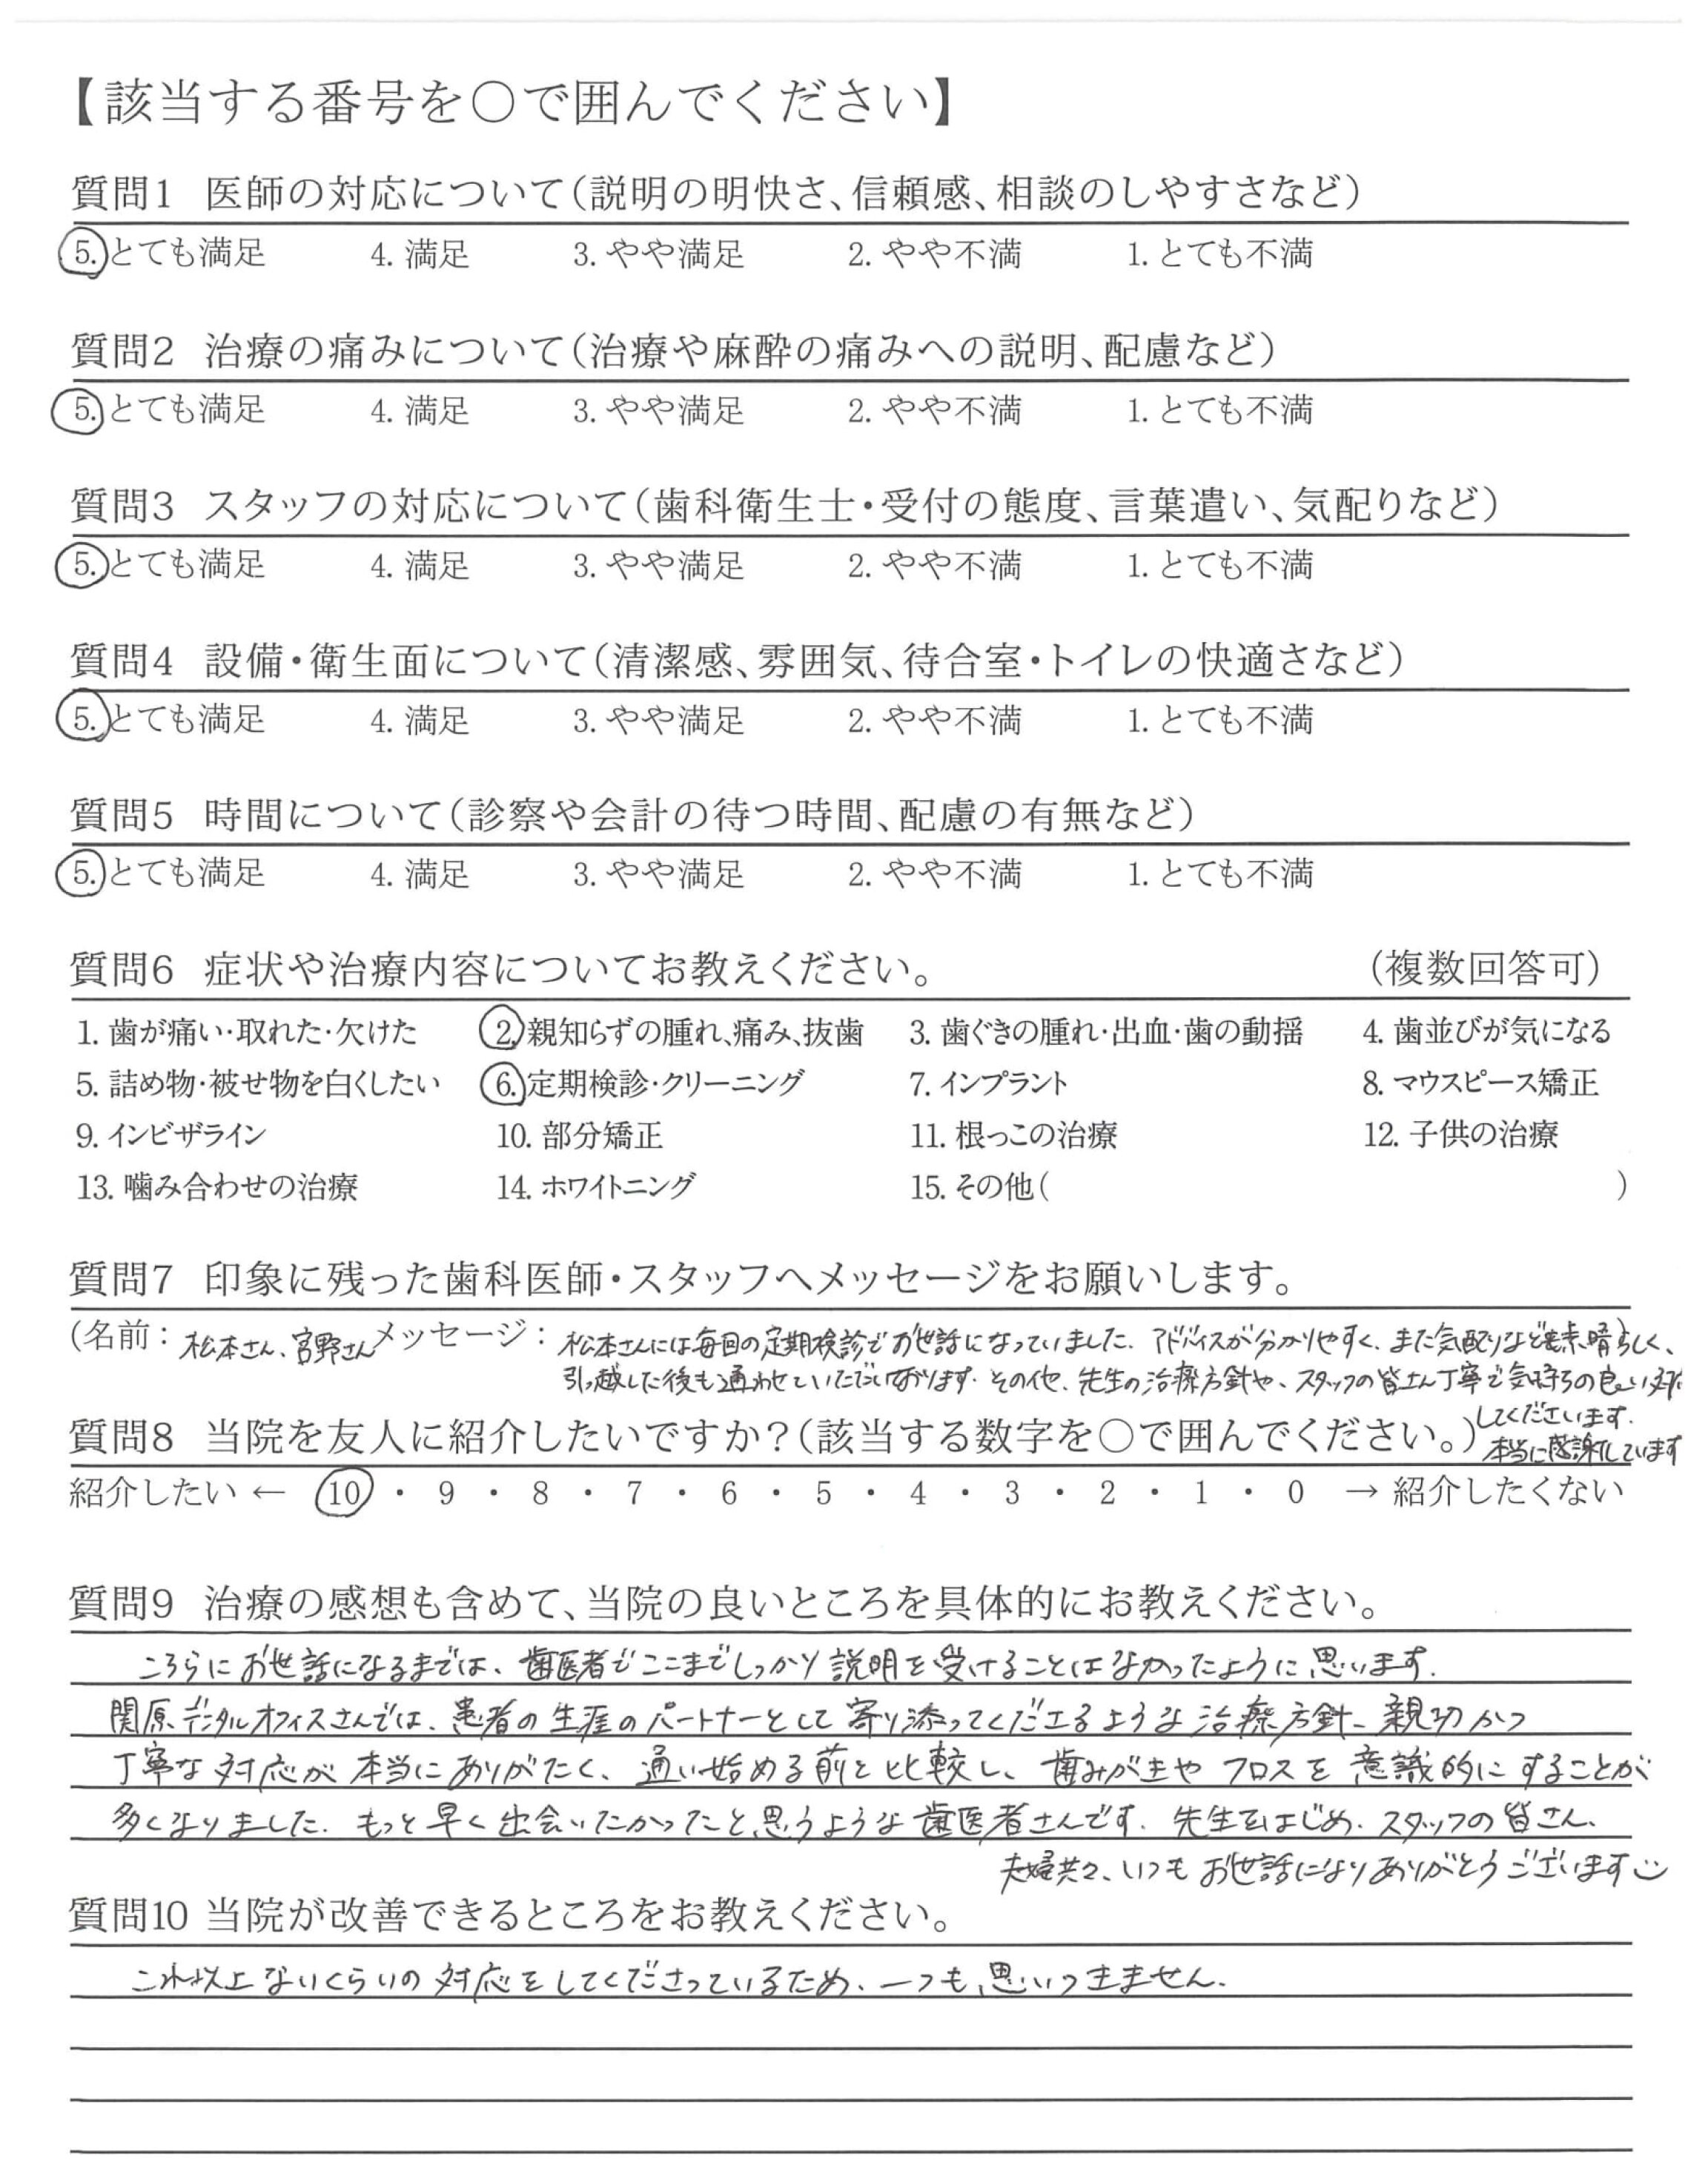 【該当する番号を○で囲んでください】
質問1 医師の対応について(説明の明快さ、信頼感、相談のしやすさなど)
5. とても満足 4. 満足 3. やや満足 2. やや不満 1. とても不満
質問2 治療の痛みについて(治療や麻酔の痛みへの説明、配慮など)
5. とても満足 4. 満足 3. やや満足 2. やや不満 1. とても不満
質問3 スタッフの対応について(歯科衛生士・受付の態度、言葉遣い、気配りなど)
5. とても満足 4. 満足 3. やや満足 2. やや不満 1. とても不満
質問4 設備・衛生面について(清潔感、雰囲気、待合室・トイレの快適さなど)
5. とても満足 4. 満足 3. やや満足 2. やや不満 1. とても不満
質問5 時間について(診察や会計の待つ時間、配慮の有無など)
5. とても満足 4. 満足 3. やや満足 2. やや不満 1. とても不満
質問6 症状や治療内容についてお教えください。 (複数回答可)
1. 歯が痛い・取れた・欠けた 2. 親知らずの腫れ、痛み、抜歯 3. 歯ぐきの腫れ・出血・歯の動揺 4. 歯並びが気になる
5. 詰め物・被せ物を白くしたい 6. 定期検診・クリーニング 7. インプラント 8. マウスピース矯正
9. インビザライン 10. 部分矯正 11. 根っこの治療 12. 子供の治療
13. 噛み合わせの治療 14. ホワイトニング 15. その他( )
質問7 印象に残った歯科医師・スタッフへメッセージをお願いします。
(名前: 松本さん、宮野さん メッセージ: 松本さんには毎回の定期検診でお世話になっていました。アドバイスが分かりやすく、また気配りなど素晴らしく、)
引っ越した後も通わせていただいております。その他、先生の治療方針や、スタッフの皆さん丁寧で気持ちの良い対応
してくださいます。
本当に感謝しています
質問8 当院を友人に紹介したいですか?(該当する数字を○で囲んでください。)
紹介したい ← 10 ・ 9 ・ 8 ・ 7 ・ 6 ・ 5 ・ 4 ・ 3 ・ 2 ・ 1 ・ 0 → 紹介したくない
質問9 治療の感想も含めて、当院の良いところを具体的にお教えください。
こちらにお世話になるまでは、歯医者でここまでしっかり説明を受けることはなかったように思います。
関原デンタルオフィスさんでは、患者の生涯のパートナーとして寄り添ってくださるような治療方針、親切かつ
丁寧な対応が本当にありがたく、通い始める前と比較し、歯みがきやフロスを意識的にすることが
多くなりました。もっと早く出会いたかったと思うような歯医者さんです。先生をはじめ、スタッフの皆さん、
夫婦共々、いつもお世話になりありがとうございます
質問10 当院が改善できるところをお教えください。
これ以上ないくらいの対応をしてくださっているため、一つも思いつきません。